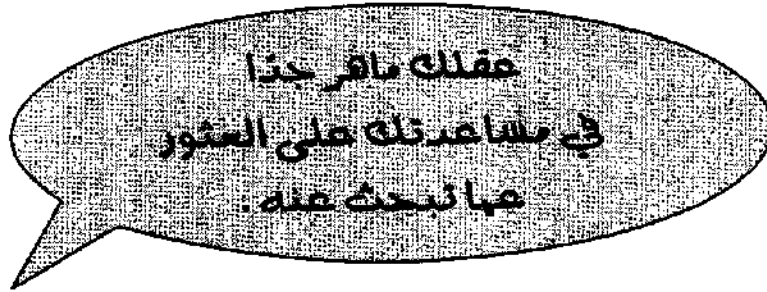 عقلك ماهر جدا
في مساعدتك على العثور
عما تبحث عنه .